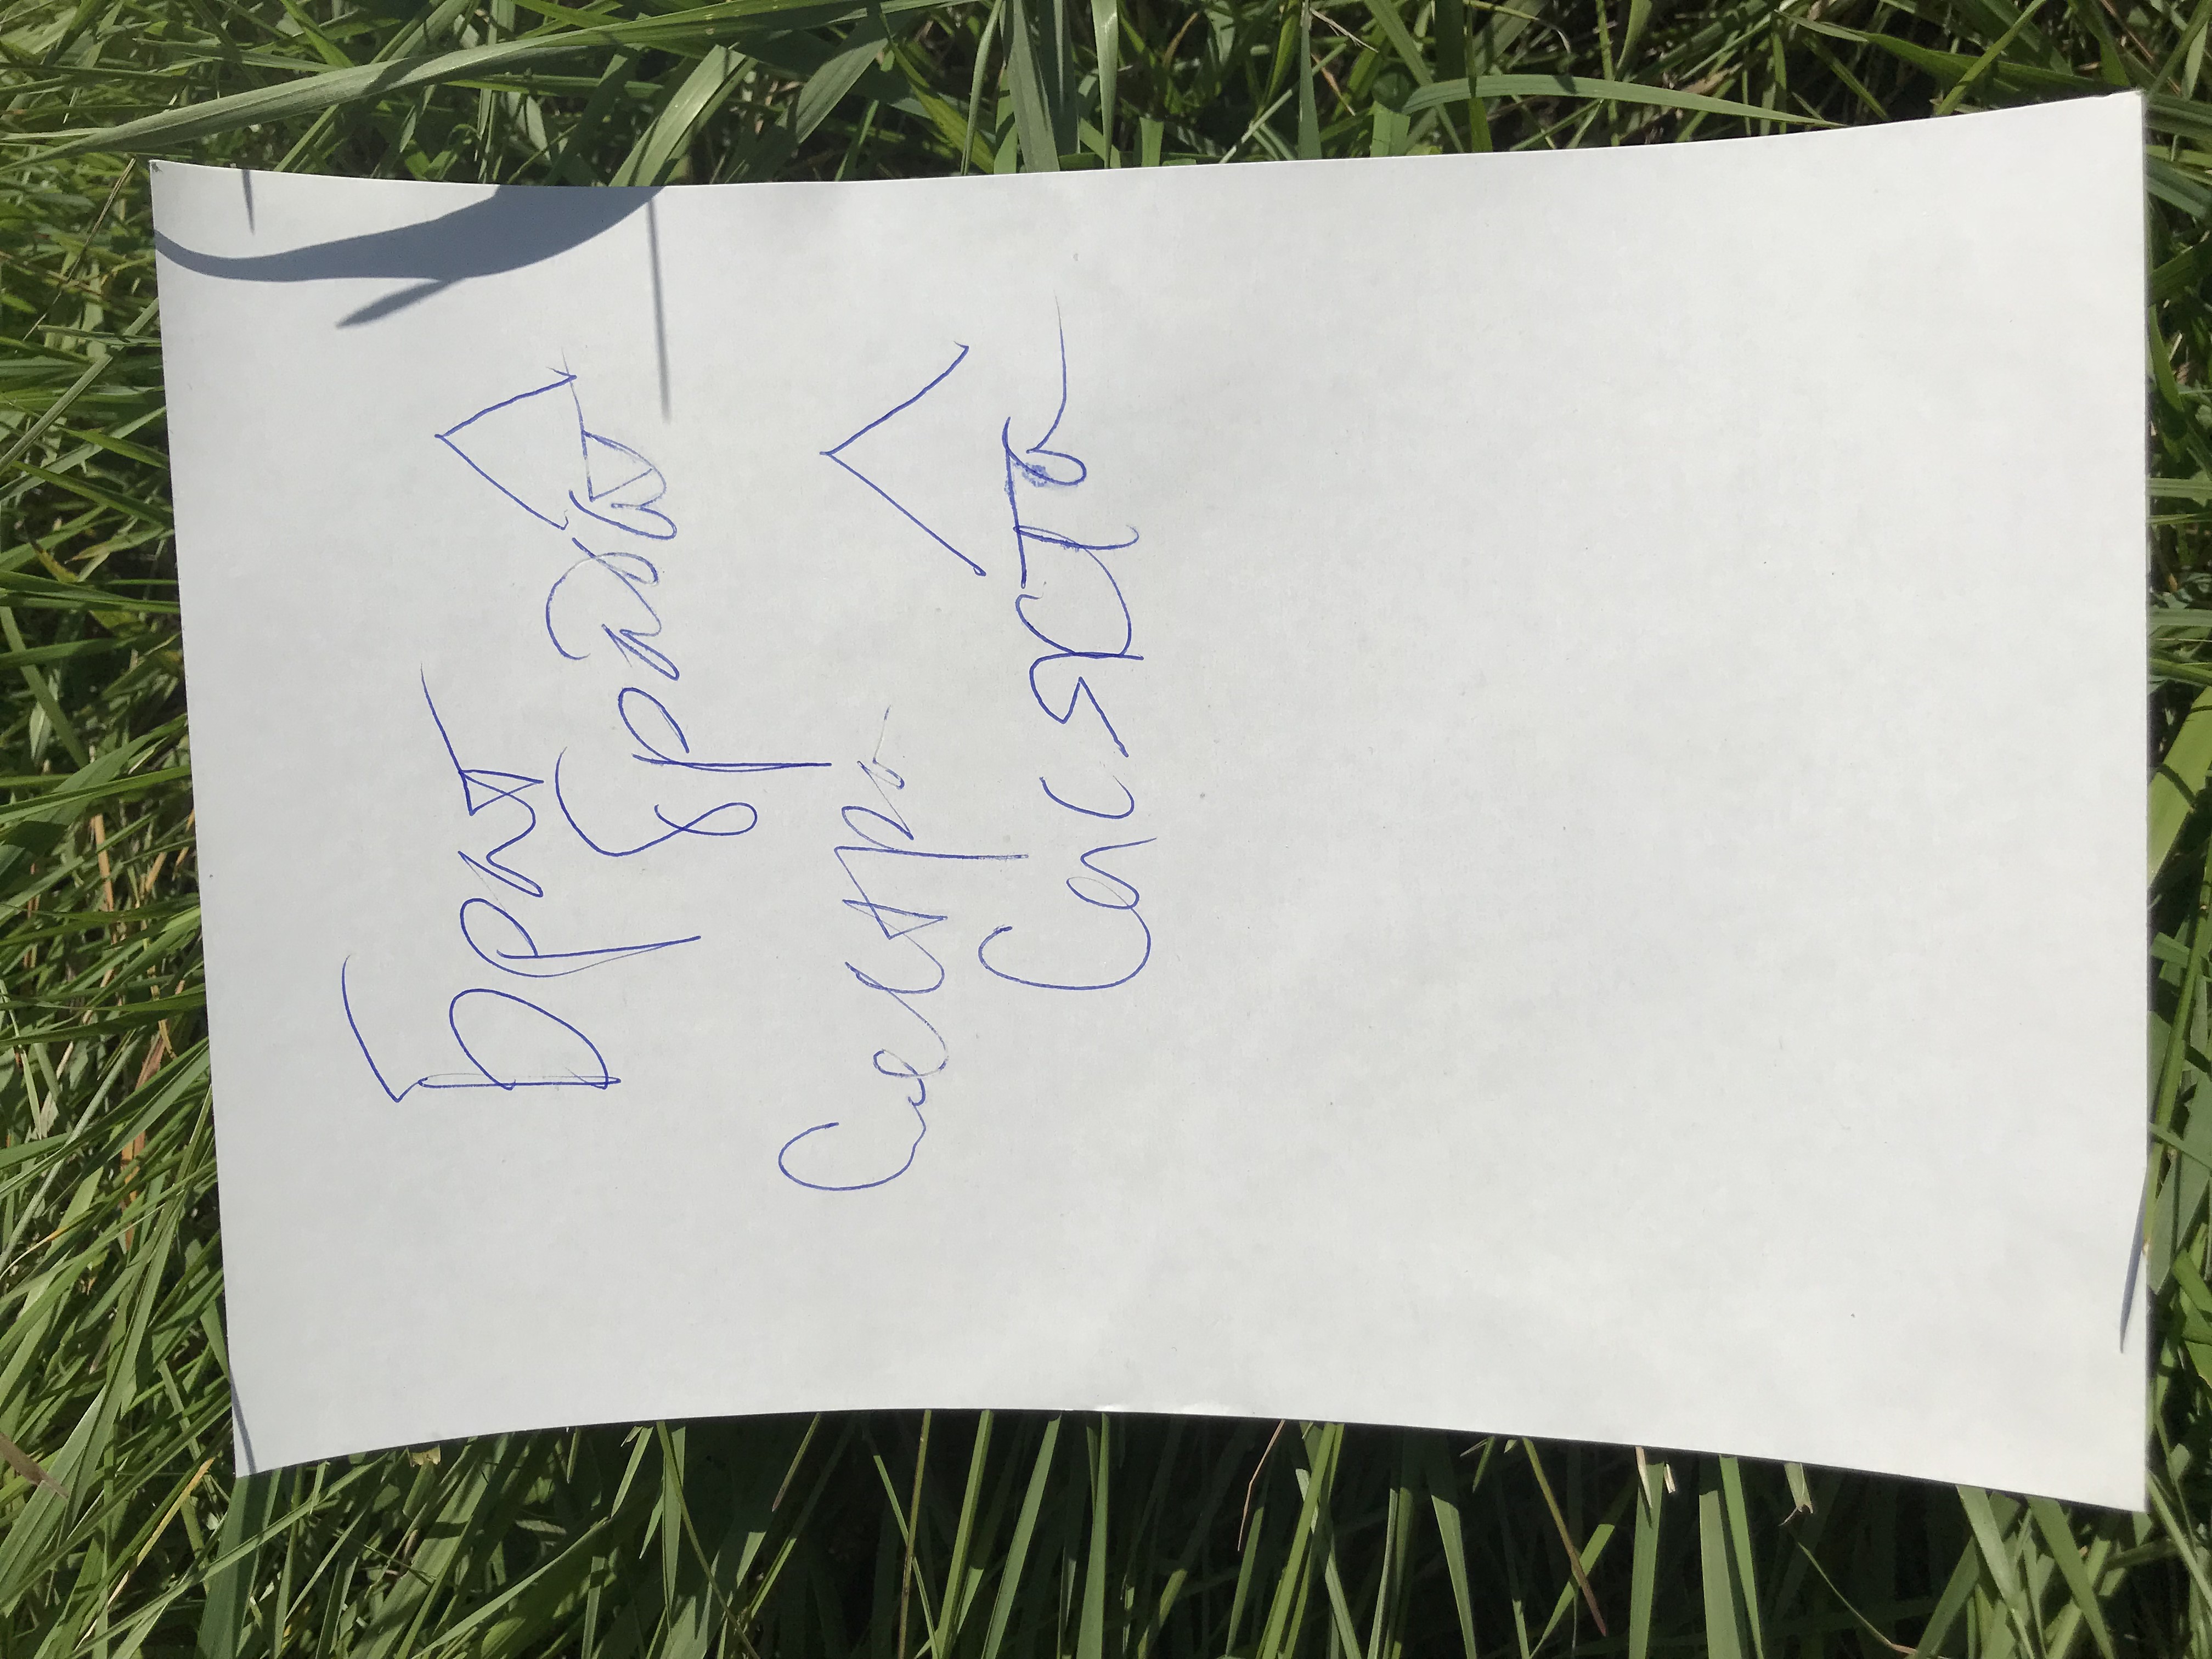 Брат
брабат
Сестра
Сасякта